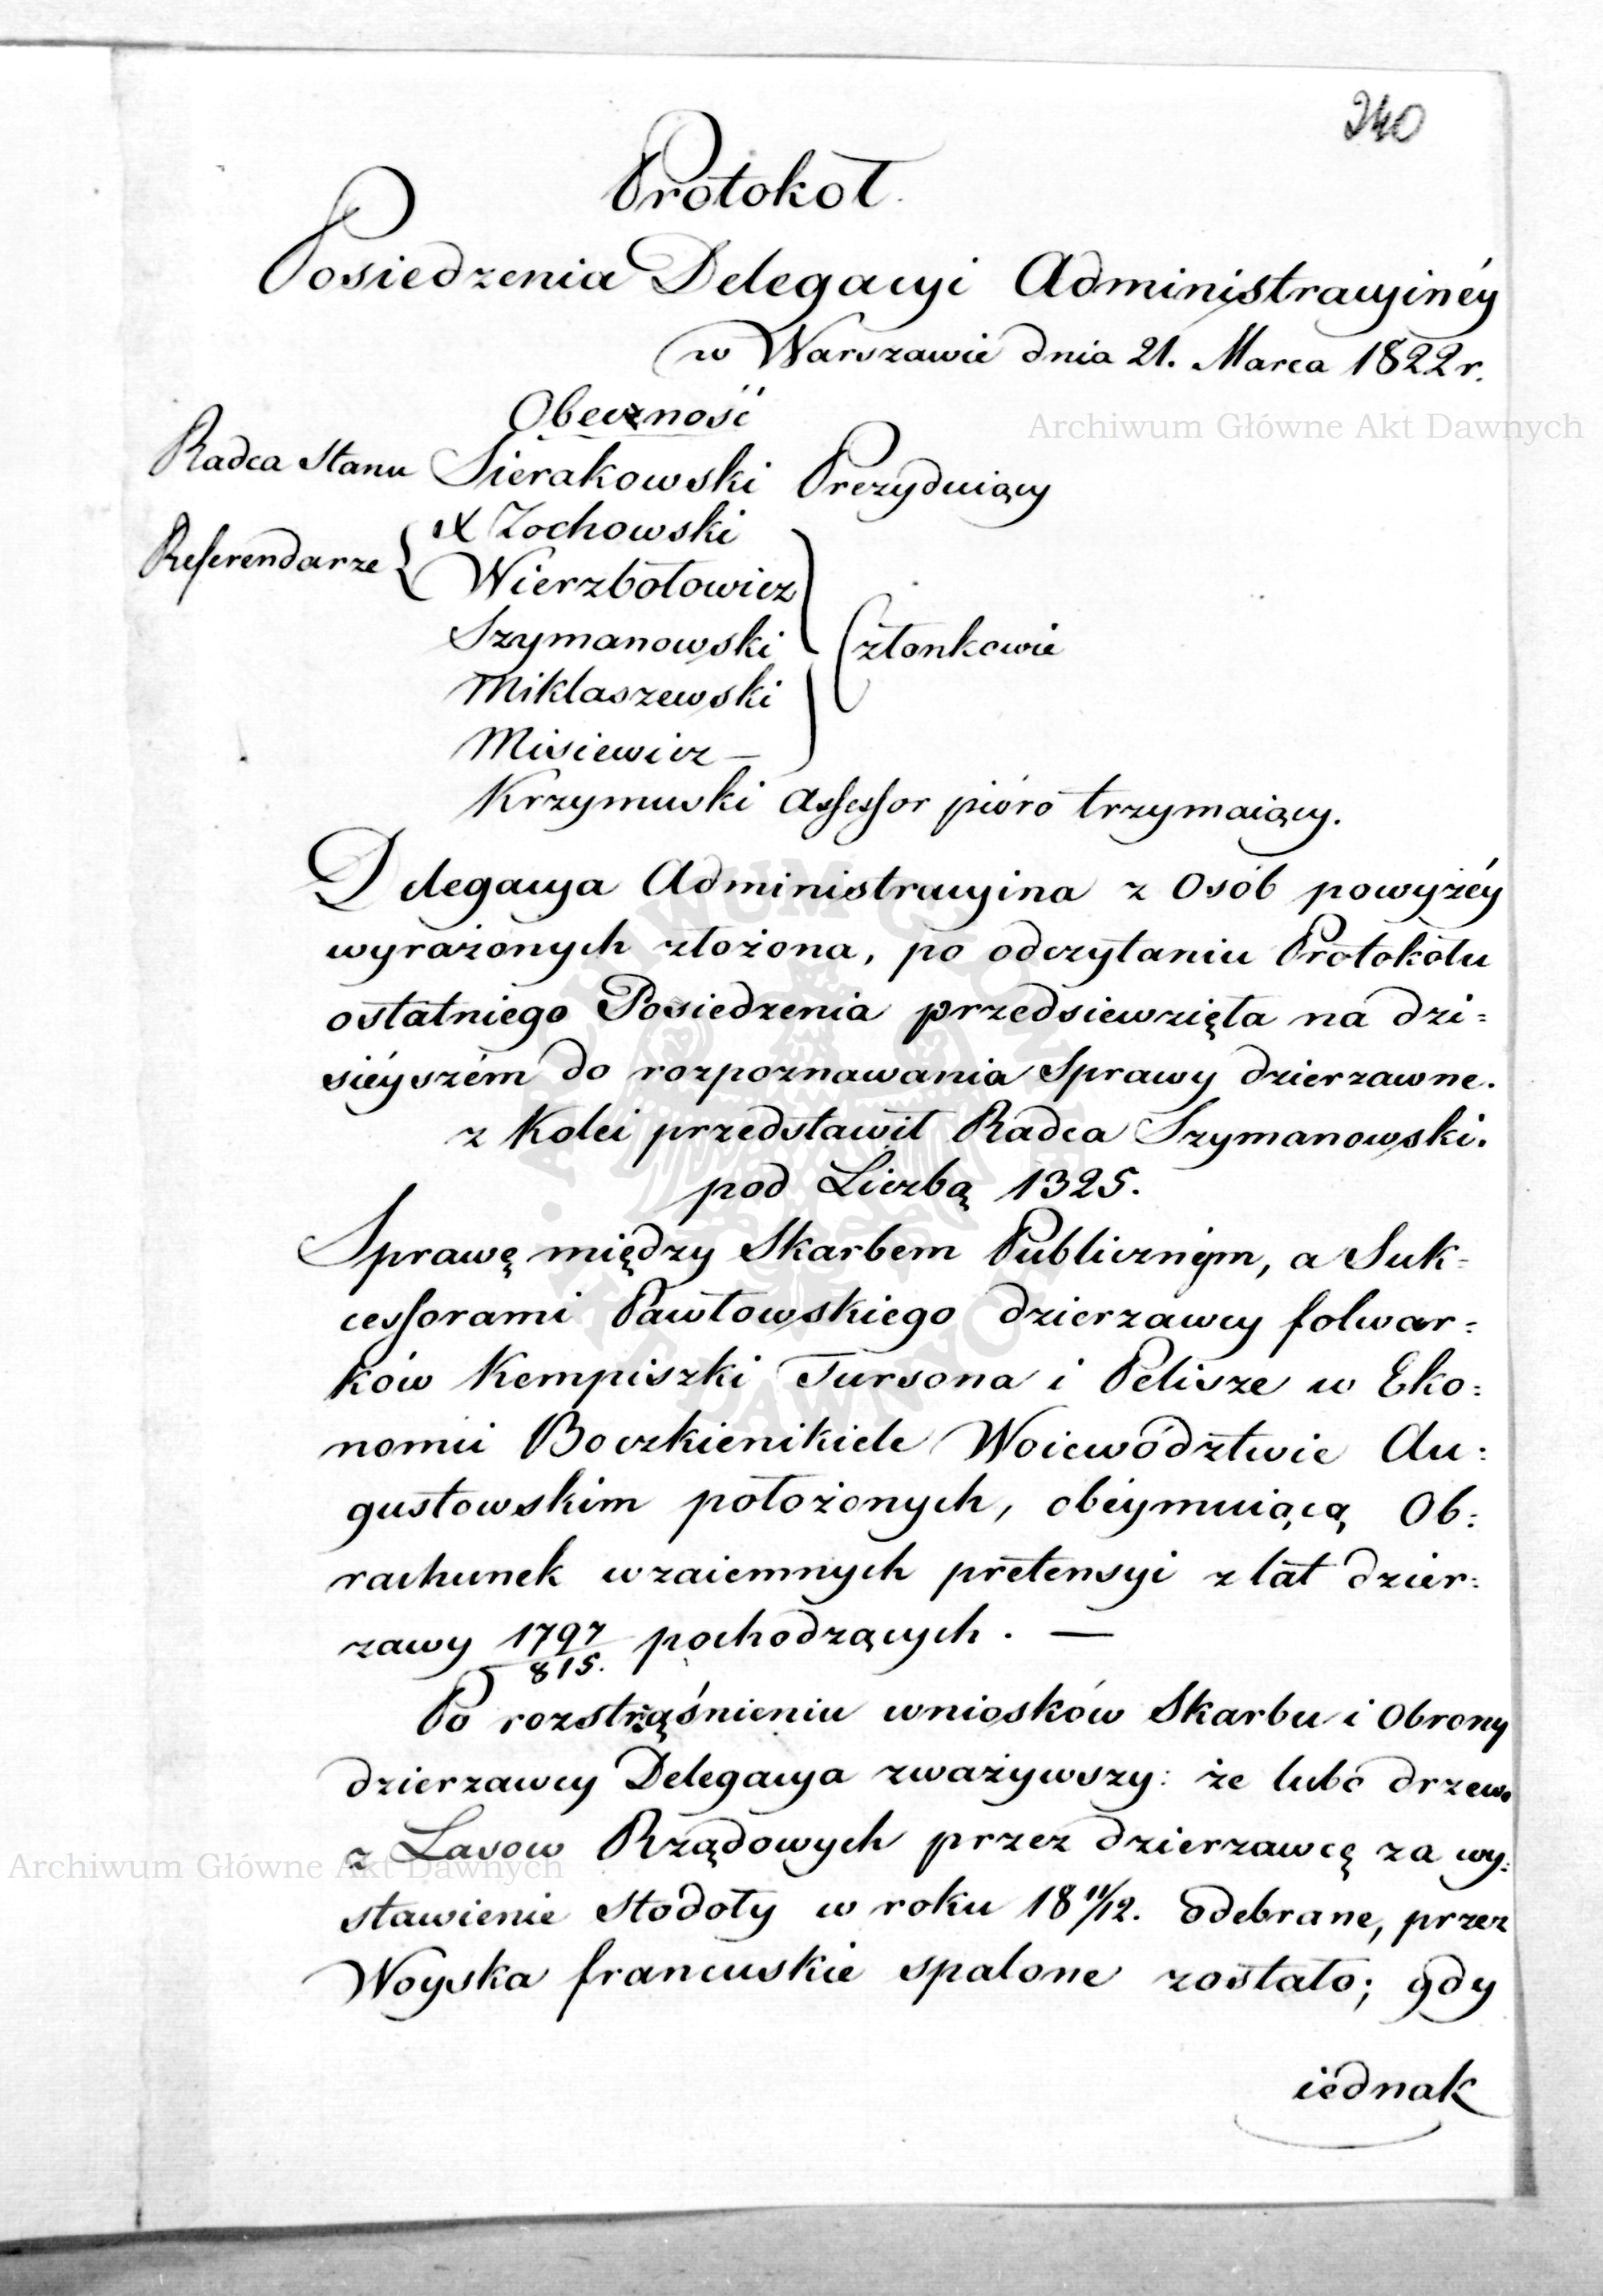 240
Protokoł.
Posiedzenia Delegacyi Administracyinéy
w Warszawie dnia 21. Marca 1822 r.
Obecność
Archiwum Główne Akt Dawnych
Radca Stanu Sierakowski Prezyduiący
X Zochowski
Referendarze Wierzbołowicz
Szymanowski Członkowie
Miklaszewski
Misiewicz —
Krzymuski Assessor pióro trzymaiący.
Delegacya Administracyina z Osób powyżéy
wyrażonych złożona, po odczytaniu Protokółu
ostatniego Posiedzenia przedsiewzięła na dzi=
siéyszém do rozpoznawania Sprawy dzierzawne.
z Kolei przedstawił Radca Szymanowski.
pod Liczbą 1325.
Sprawę między Skarbem Publicznym, a Suk=
cessorami Pawłowskiego dzierzawcy folwar=
ków Kempiszki Tursona i Pelisze w Eko=
nomii Boczkienikiele Woiewództwie Au=
gustowskim położonych, obéymuiącą Ob=
rachunek wzaiemnych pretensyi z lat dzier=
zawy 1797/815. pochodzących. —
Po roztrząśnieniu wniosków Skarbu i Obrony
dzierzawcy Delegacya zważywszy: że lubo drzewo
z Lasow Rządowych przez dzierzawcę za wy=
Archiwum Główne Akt Dawnych
stawienie stodoły w roku 18 11/12. odebrane, przez
Woyska francuskie spalone zostało; gdy
iednak